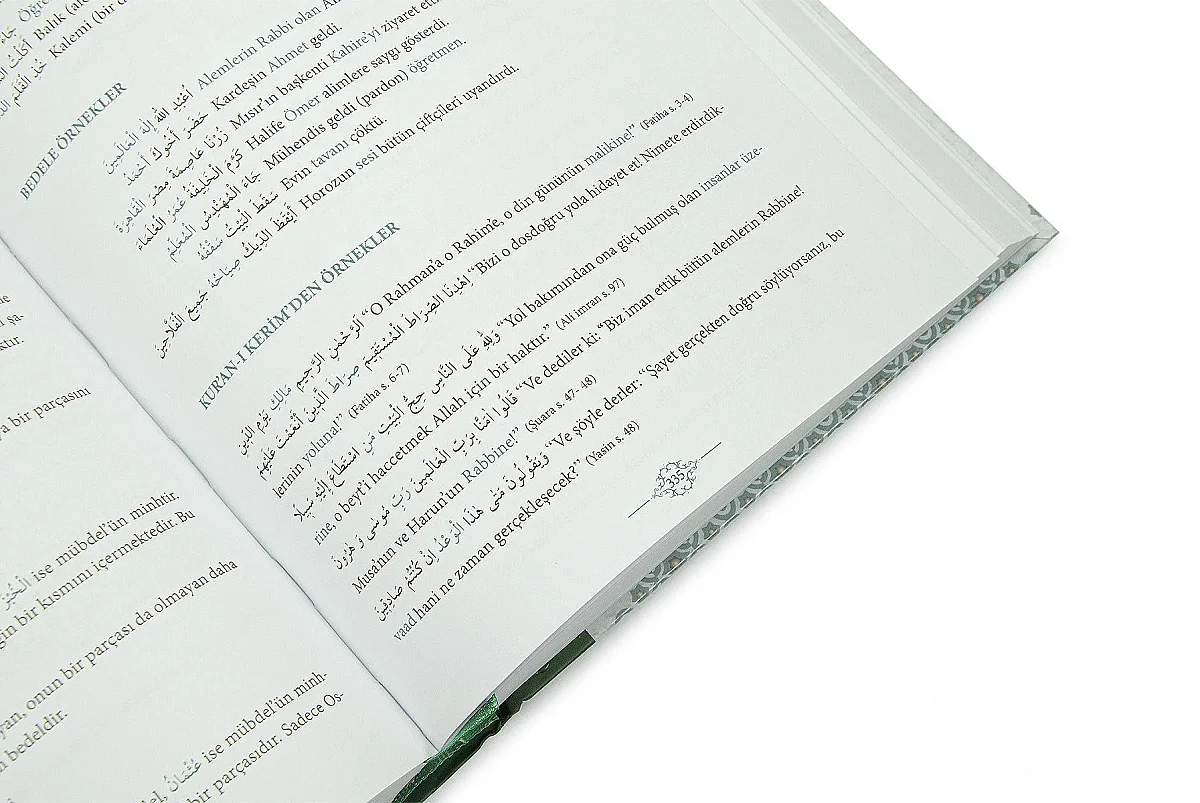 ise mübdel'ün minhtir.
bir kısmını içermektedir. Bu
onun bir parçası da olmayan daha
bedeldir.
عُثْمَانُ ise mübdel'ün minh-
bir parçasıdır. Sadece Os-
Kalemi (bir
BEDELE ÖRNEKLER
أَعْبُدُ اللهَ إِلَهَ الْعَالَمِينَ Alemlerin Rabbi olan
حَضَرَ أَخُوكَ أَحْمَدُ Kardeşin Ahmet geldi.
زُرْنَا عَاصِمَةَ مِصْرَ الْقَاهِرَةَ Mısır'ın başkenti Kahire'yi ziyaret
كَرَّمَ الْخَلِيفَةُ عُمَرُ الْعُلَمَاءَ Halife Ömer alimlere saygı gösterdi.
جَاءَ الْمُهَنْدِسُ الْمُعَلِّمُ Mühendis geldi (pardon) öğretmen.
سَقَطَ الْبَيْتُ سَقْفُهُ Evin tavanı çöktü.
أَيْقَظَ الدِّيكُ صِيَاحُهُ جَمِيعَ الْفَلَّاحِينَ Horozun sesi bütün çiftçileri uyandırdı.
KURAN-I KERİM'DEN ÖRNEKLER
الرَّحْمٰنِ الرَّحِيمِ مَالِكِ يَوْمِ الدِّينِ “O Rahman'a o Rahim'e, o din gününün malikine!” (Fatiha s. 3-4)
اِهْدِنَا الصِّرَاطَ الْمُسْتَقِيمَ صِرَاطَ الَّذِينَ أَنْعَمْتَ عَلَيْهِمْ “Bizi o dosdoğru yola hidayet et! Nimete erdirdik-
lerinin yoluna!” (Fatiha s. 6-7)
وَلِلّٰهِ عَلَى النَّاسِ حِجُّ الْبَيْتِ مَنِ اسْتَطَاعَ إِلَيْهِ سَبِيلًا “Yol bakımından ona güç bulmuş olan insanlar üze-
rine, o beyt'i haccetmek Allah için bir haktır.” (Ali imran s. 97)
قَالُوا اٰمَنَّا بِرَبِّ الْعَالَمِينَ رَبِّ مُوسَى وَ هٰرُونَ “Ve dediler ki: “Biz iman ettik bütün alemlerin Rabbine!
Musa'nın ve Harun'un Rabbine!” (Şuara s. 47- 48)
وَيَقُولُونَ مَتٰى هٰذَا الْوَعْدُ إِنْ كُنْتُمْ صَادِقِينَ “Ve şöyle derler: “Şayet gerçekten doğru söylüyorsanız, bu
vaad hani ne zaman gerçekleşecek?” (Yasin s. 48)
335